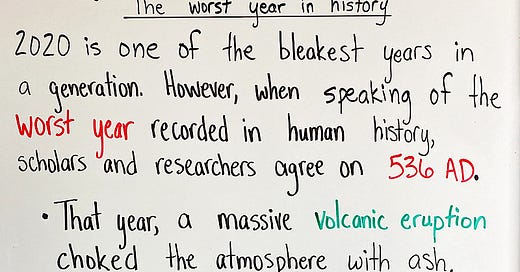 The worst year in history
2020 is one of the bleakest years in
a generation. However, when speaking of the
worst year recorded in human history,
scholars and researchers agree on 536 AD.
• That year, a massive volcanic eruption
choked the atmosphere with ash.